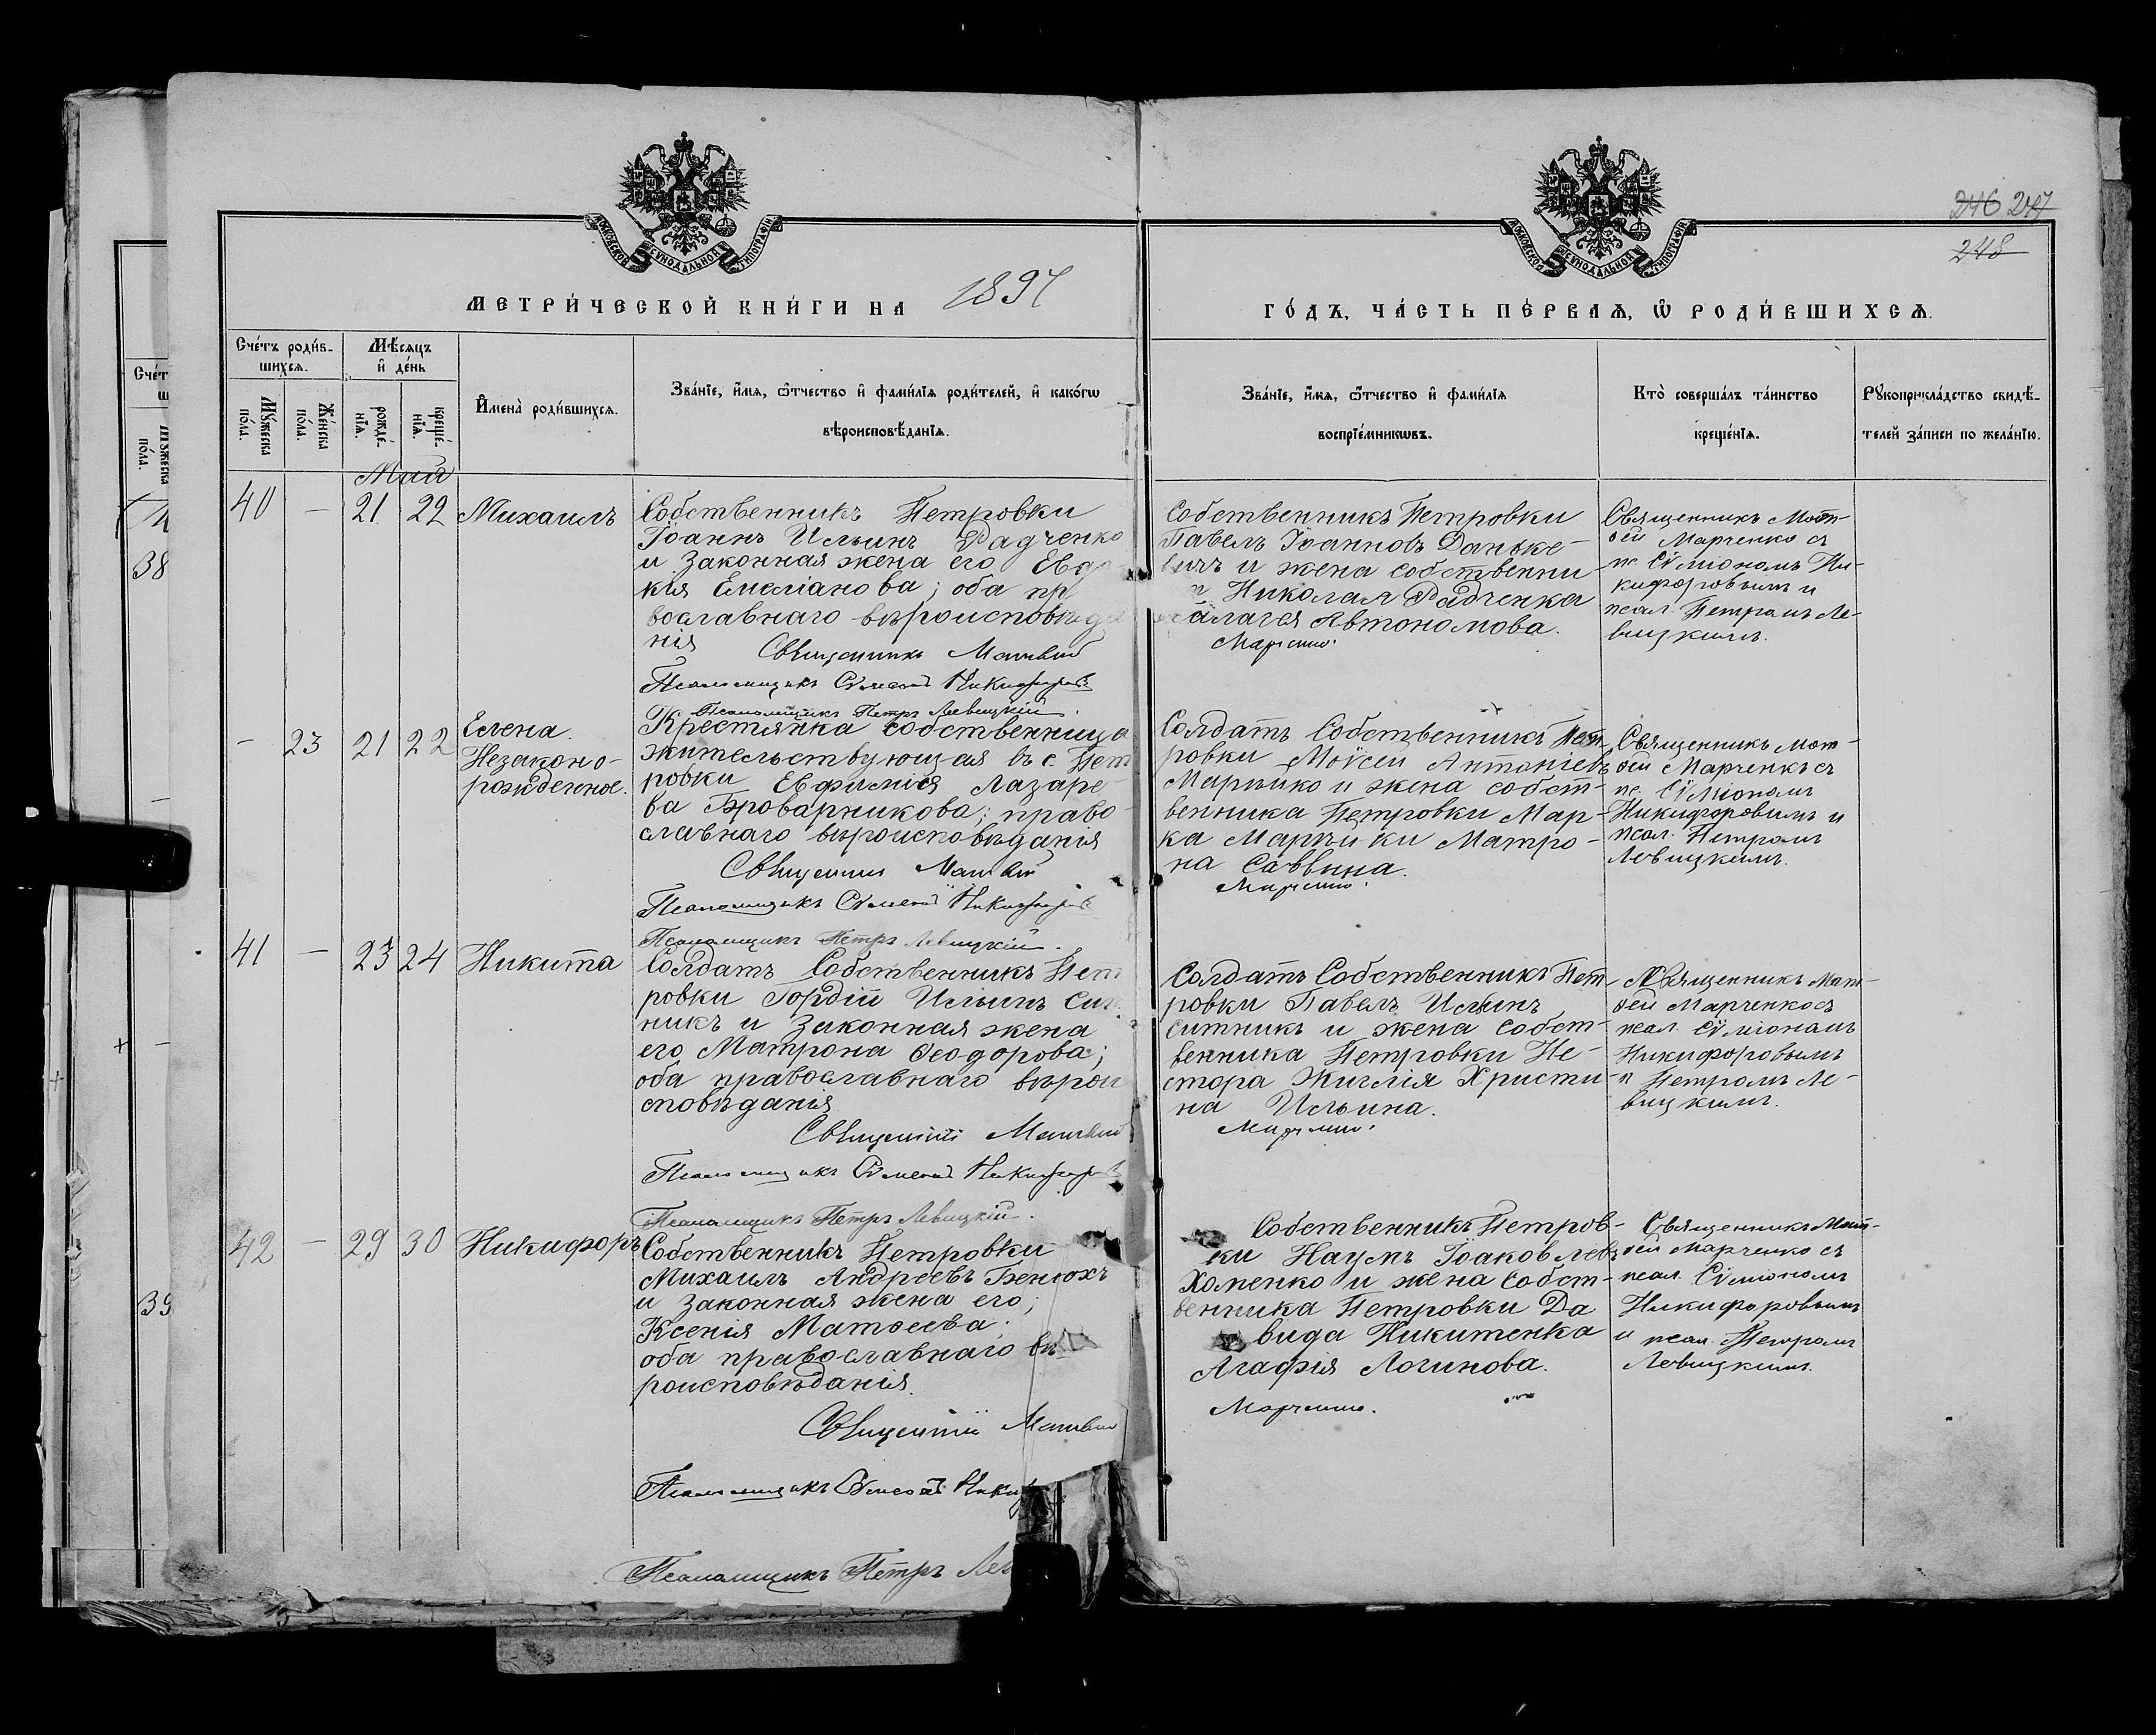 246 247
248
МОСКОВСКОЙ СѴНОДАЛЬНОЙ ТИПОГРАФІИ
МОСКОВСКОЙ СѴНОДАЛЬНОЙ ТИПОГРАФІИ
МЕТРИ́ЧЕСКОЙ КНИ́ГИ НА 1897
ГО́ДЪ, ЧА́СТЬ ПЕ́РВАѦ, Ѡ҆ РОДИ́ВШИХСѦ.
Сче́тъ роди́в-
шихсѧ.
Мꙋ́жеска по́ла.
Же́нска по́ла.
Мѣ́сяцъ
и҆ де́нь
рожде́-
нїѧ.
креще́-
нїѧ.
И҆мена̀ роди́вшихсѧ.
Зва́нїе, и҆́мѧ, ѻ҆́тчество и҆ фами́лїѧ роди́телей, и҆ како́гѡ
вѣроисповѣ́данїѧ.
Зва́нїе, и҆́мѧ, ѻ҆́тчество и҆ фами́лїѧ
воспрїе́мникѡвъ.
Кто̀ соверша́лъ та́инство
креще́нїѧ.
Рꙋкоприкла́дство свидѣ́-
телей за́писи по жела́нїю.
Мая
40 — 21 22 Михаилъ
Собственникъ Петровки
Іоаннъ Ильинъ Радченко
и законная жена его Евд
кія Емеліанова; оба пр
вославнаго вѣроисповѣда
нія
Священникъ Матвѣй
Псаломщикъ Сѵмеонъ Никифоровъ
Псаломщикъ Петръ Левицкій.
Собственникъ Петровки
Павелъ Іоанновъ Даньке-
вичъ и жена собственни-
Николая Радченка
алагея Автономова.
Марченко.
Священникъ Мат-
ѳей Марченко съ
пс. Сѵміономъ Ни-
кифоровымъ и
псал. Петромъ Ле-
вицкимъ.
— 23 21 22 Елена.
Незаконно-
рожденное.
Крестянка собственница
жительствующая въ с. Пет
ровки Евфимія Лазаре
ва Броварникова; право-
славнаго вѣроисповѣданія
Священникъ Матвѣй
Псаломщикъ Сѵмеонъ Никифоровъ
Псаломщикъ Петръ Левицкій.
Солдатъ Собственникъ Пет-
ровки Моѵсей Антоніевъ
Марчико и жена собст-
венника Петровки Мар-
ка Матро-
на Саввина.
Марченко.
Священникъ Мат-
ѳей Марченкъ съ
пс. Сѵміономъ
Никифоровымъ и
псал. Петромъ
Левицкимъ.
41 — 23 24 Никита
Солдатъ Собственникъ Пет
ровки Гордій Ильинъ Сит
никъ и законная жена
его Матрона Ѳеодорова;
оба православнаго вѣрои
сповѣданія
Священникъ Матвѣй
Псаломщикъ Сѵмеонъ Никифоровъ
Псаломщикъ Петръ Левицкій.
Солдатъ Собственникъ Пет-
ровки Павелъ Ильинъ
ситникъ и жена собст-
венника Петровки Не-
стора Жиглія Христи-
на Ильина.
Марченко.
Священникъ Мат-
ѳей Марченко съ
псал. Сѵміономъ
Никифоровымъ
и Петромъ Ле-
вицкимъ.
42 — 29 30 Никифоръ
Собственникъ Петровки
Михаилъ Андреевъ Бенюхъ
и законная жена его;
Ксенія Матѳеева;
оба православнаго вѣ-
роисповѣданія.
Священникъ Матвѣй
Псаломщикъ Сѵмеонъ Ники
Псаломщикъ Петръ Лев
Собственникъ Петров-
ки Наумъ Іоаковлевъ
Хоменко и жена собст-
венника Петровки Да
вида Никитенка
Агафія Логинова.
Марченко.
Священникъ Мат-
ѳей Марченко съ
псал. Сѵміономъ
Никифоровымъ
и псал. Петромъ
Левицкимъ.
Сче́т
38
39